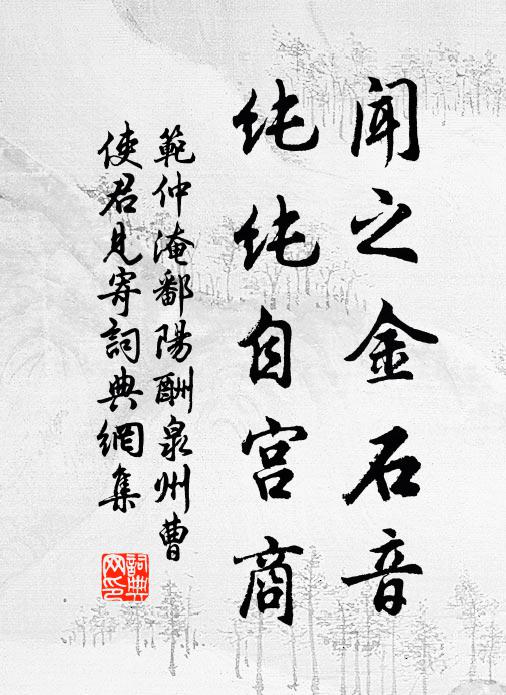 闻之金石音
纯纯自宫商
範仲淹鄱陽酬泉州曹
使君見寄詞典網集
詞典网印